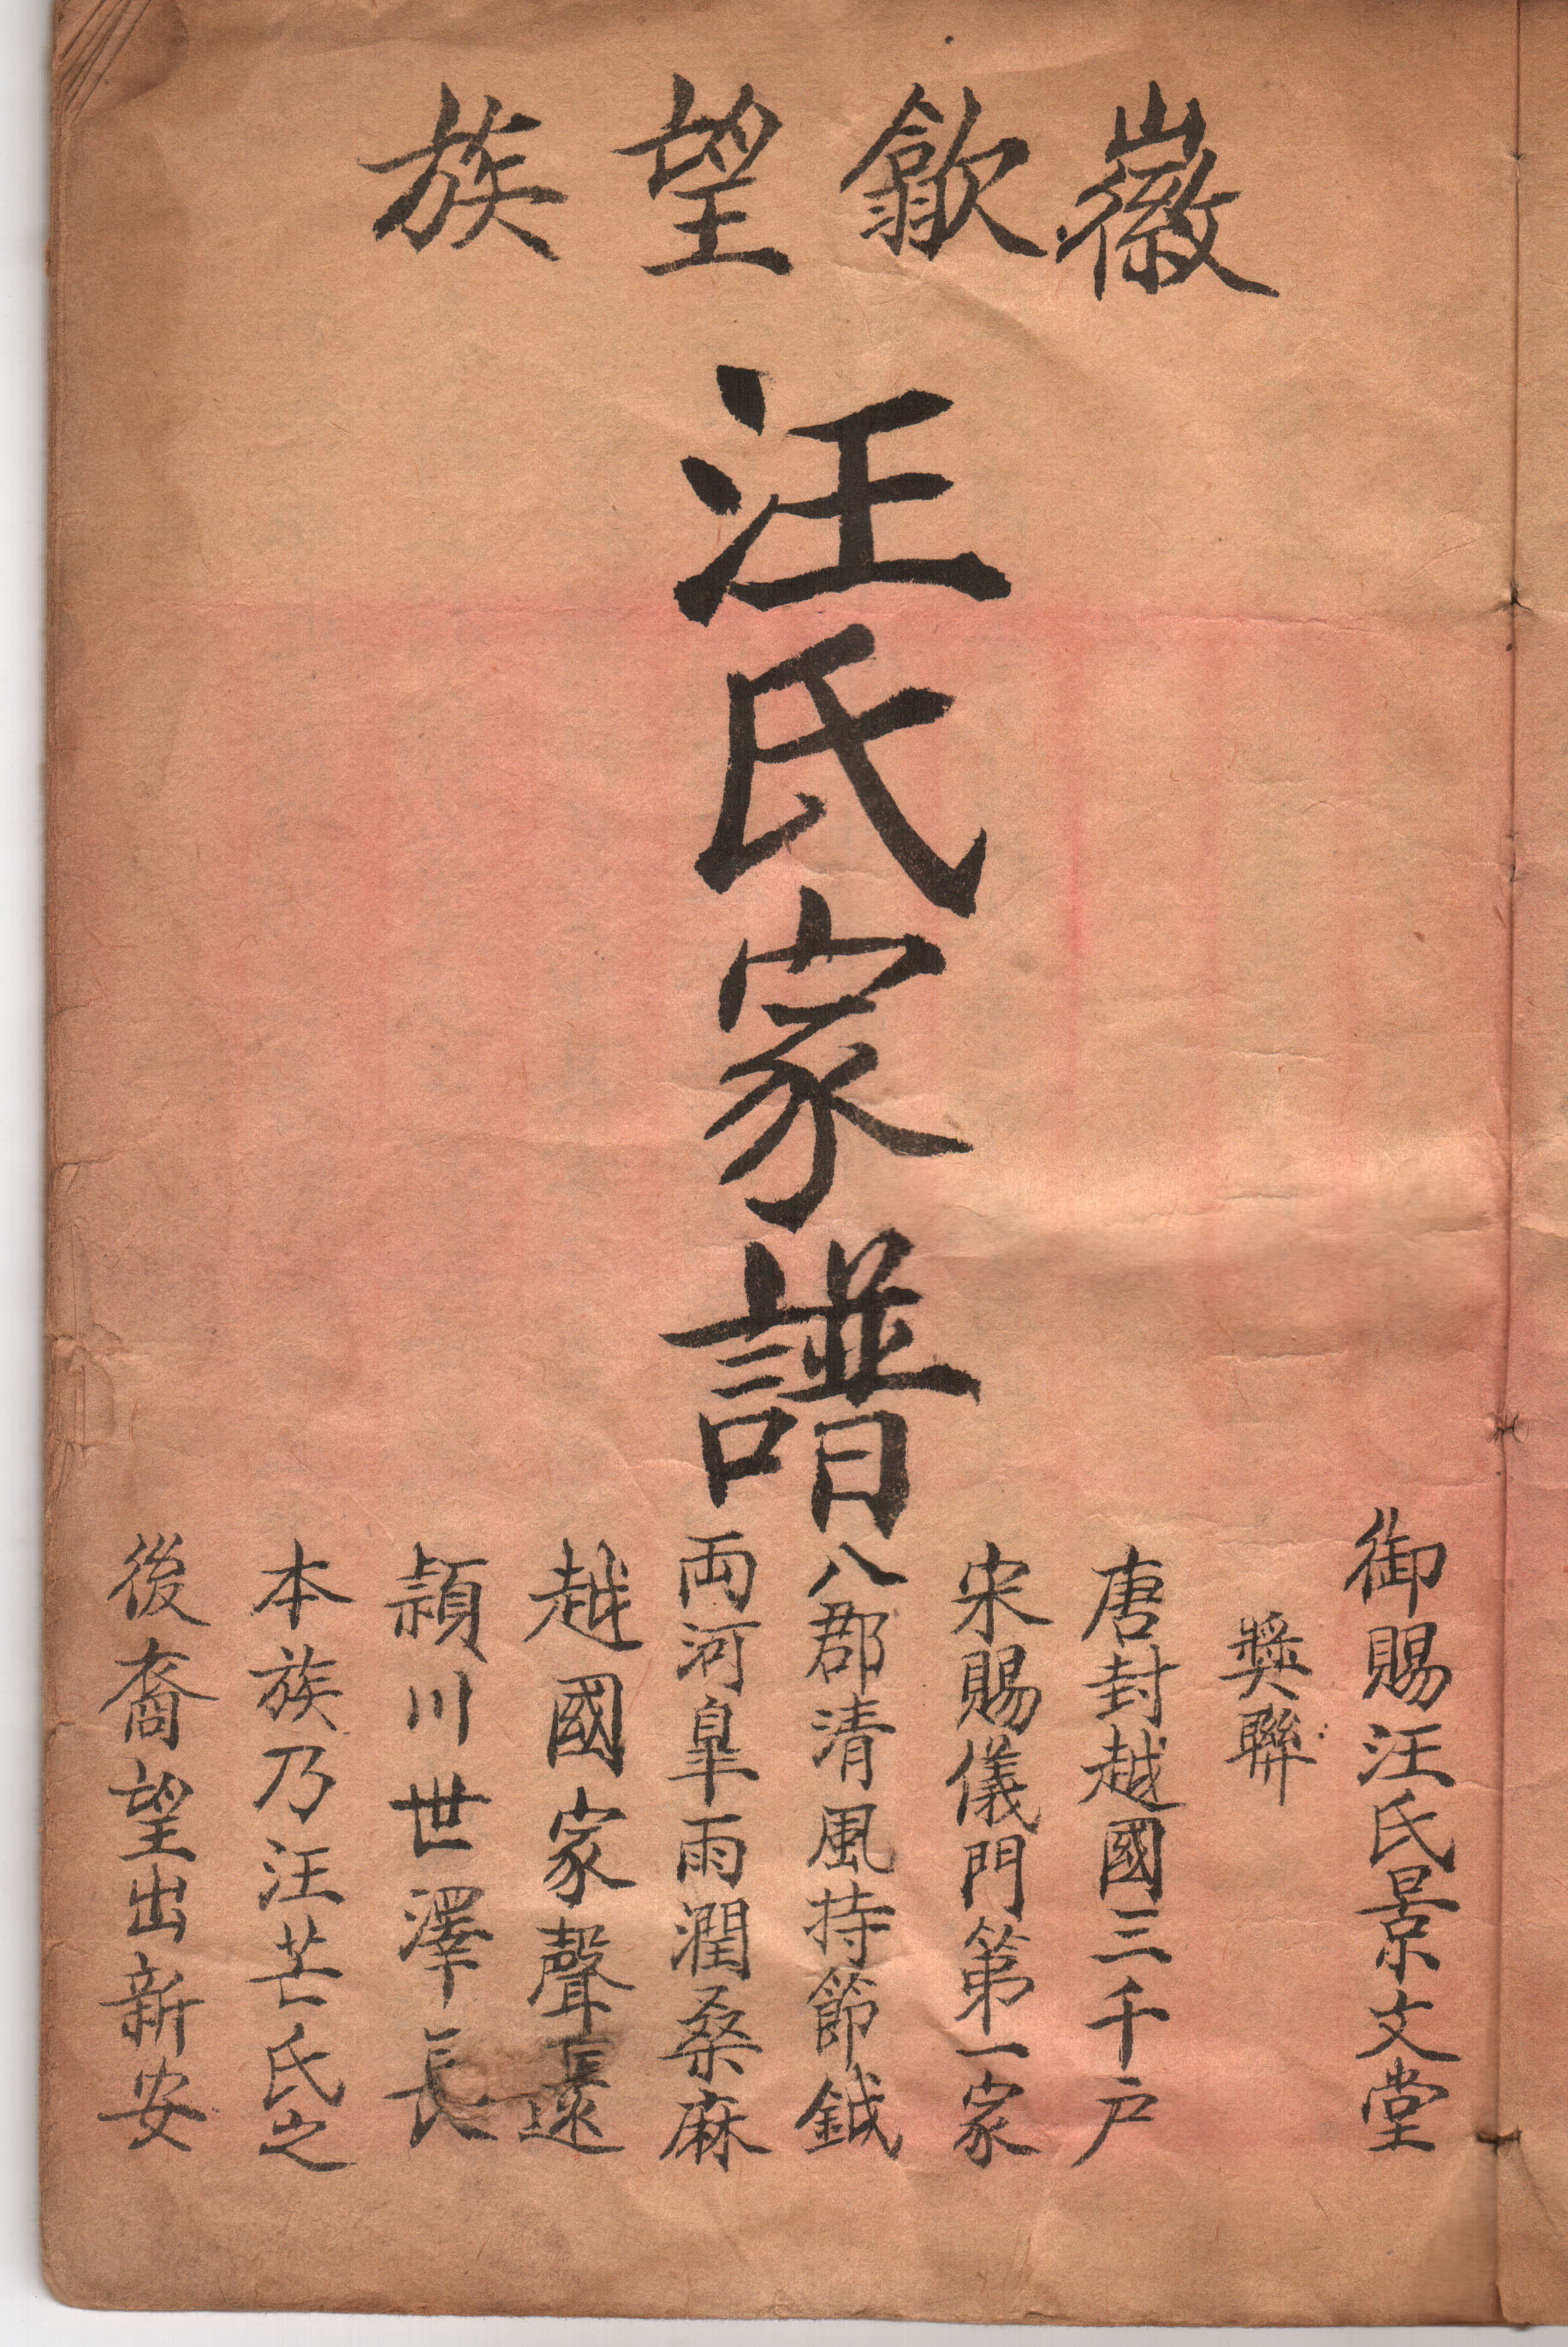 徽歙望族
汪氏家譜
御賜汪氏景文堂
獎聯
唐封越國三千户
宋賜儀門第一家
八郡清風持節鉞
両河皐雨潤桑麻
越國家聲遠
潁川世澤長
本族乃汪芒氏之
後裔望出新安